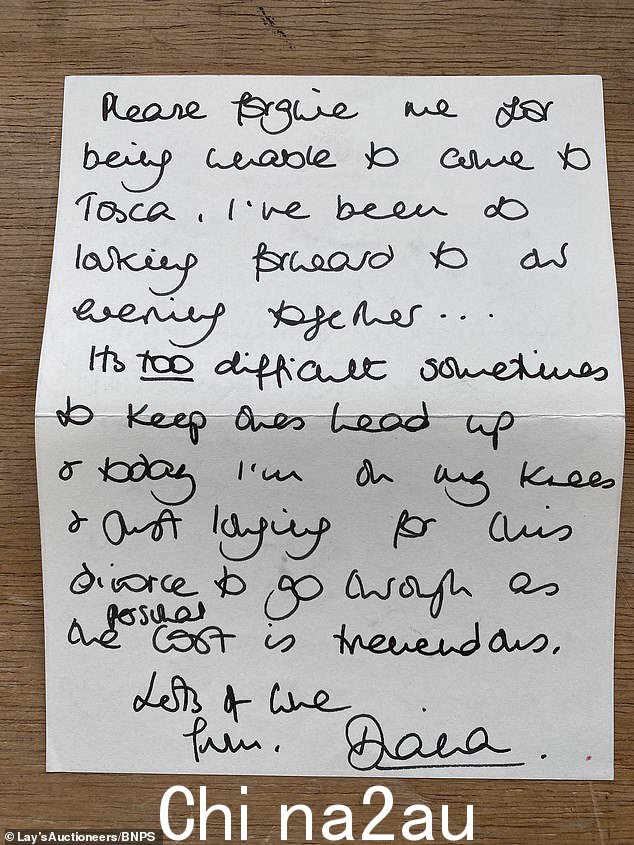 Please forgive me for
being unable to come to
Tosca. I've been so
looking forward to our
evening together...
Its too difficult sometimes
to keep ones head up
& today I'm on my knees
& just longing for this
divorce to go through as
the personal cost is tremendous.
Lots of love
from.
Diana.
© Lay'sAuctioneers/BNPS
China2au